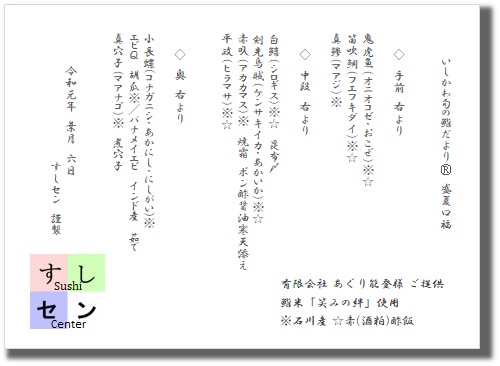 いしかわ旬の鮨だより® 盛夏口福
◇ 手前 右より
鬼虎魚(オニオコゼ・おこぜ)※☆
笛吹鯛(フエフキダイ)※☆
真鯵(マアジ)※
◇ 中段 右より
白鱚(シロギス)※☆ 昆布〆
剣先烏賊(ケンサキイカ・あかいか)※☆
赤魳(アカカマス)※ 焼霜 ポン酢醤油寒天添え
平政(ヒラマサ)※☆
◇ 奥 右より
小長螺(コナガニシ・あかにし・にしがい)※
エビQ 胡瓜※／バナメイエビ インド産 茹で
真穴子(マアナゴ)※ 煮穴子
令和元年 葉月 六日
すしセン 謹製
有限会社 あぐり能登様 ご提供
鮨米「笑みの絆」使用
※石川産 ☆赤(酒粕)酢飯
すし
Sushi
セン
Center